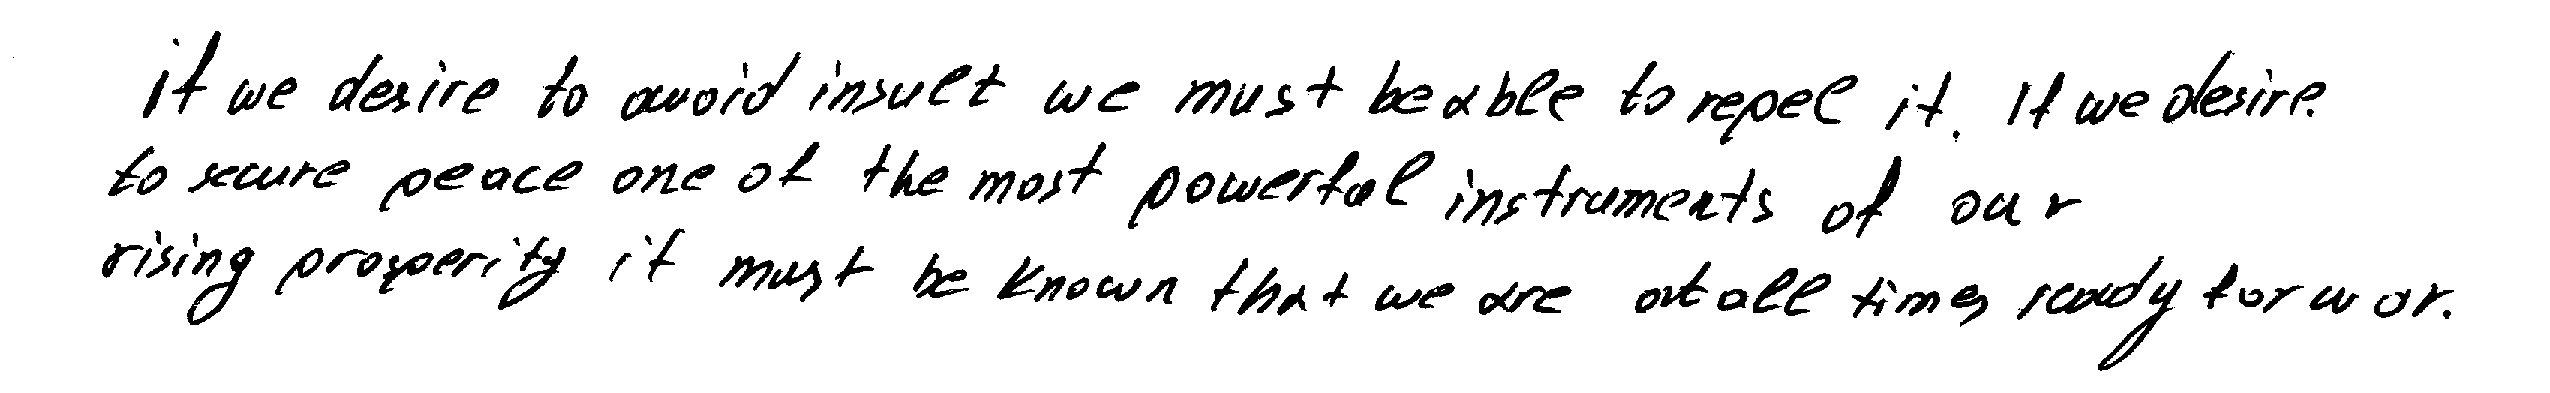 if we desire to avoid insult we must be able to repel it. If we desire
to secure peace one of the most powerful instruments of our
rising prosperity it must be known that we are at all times ready for war.